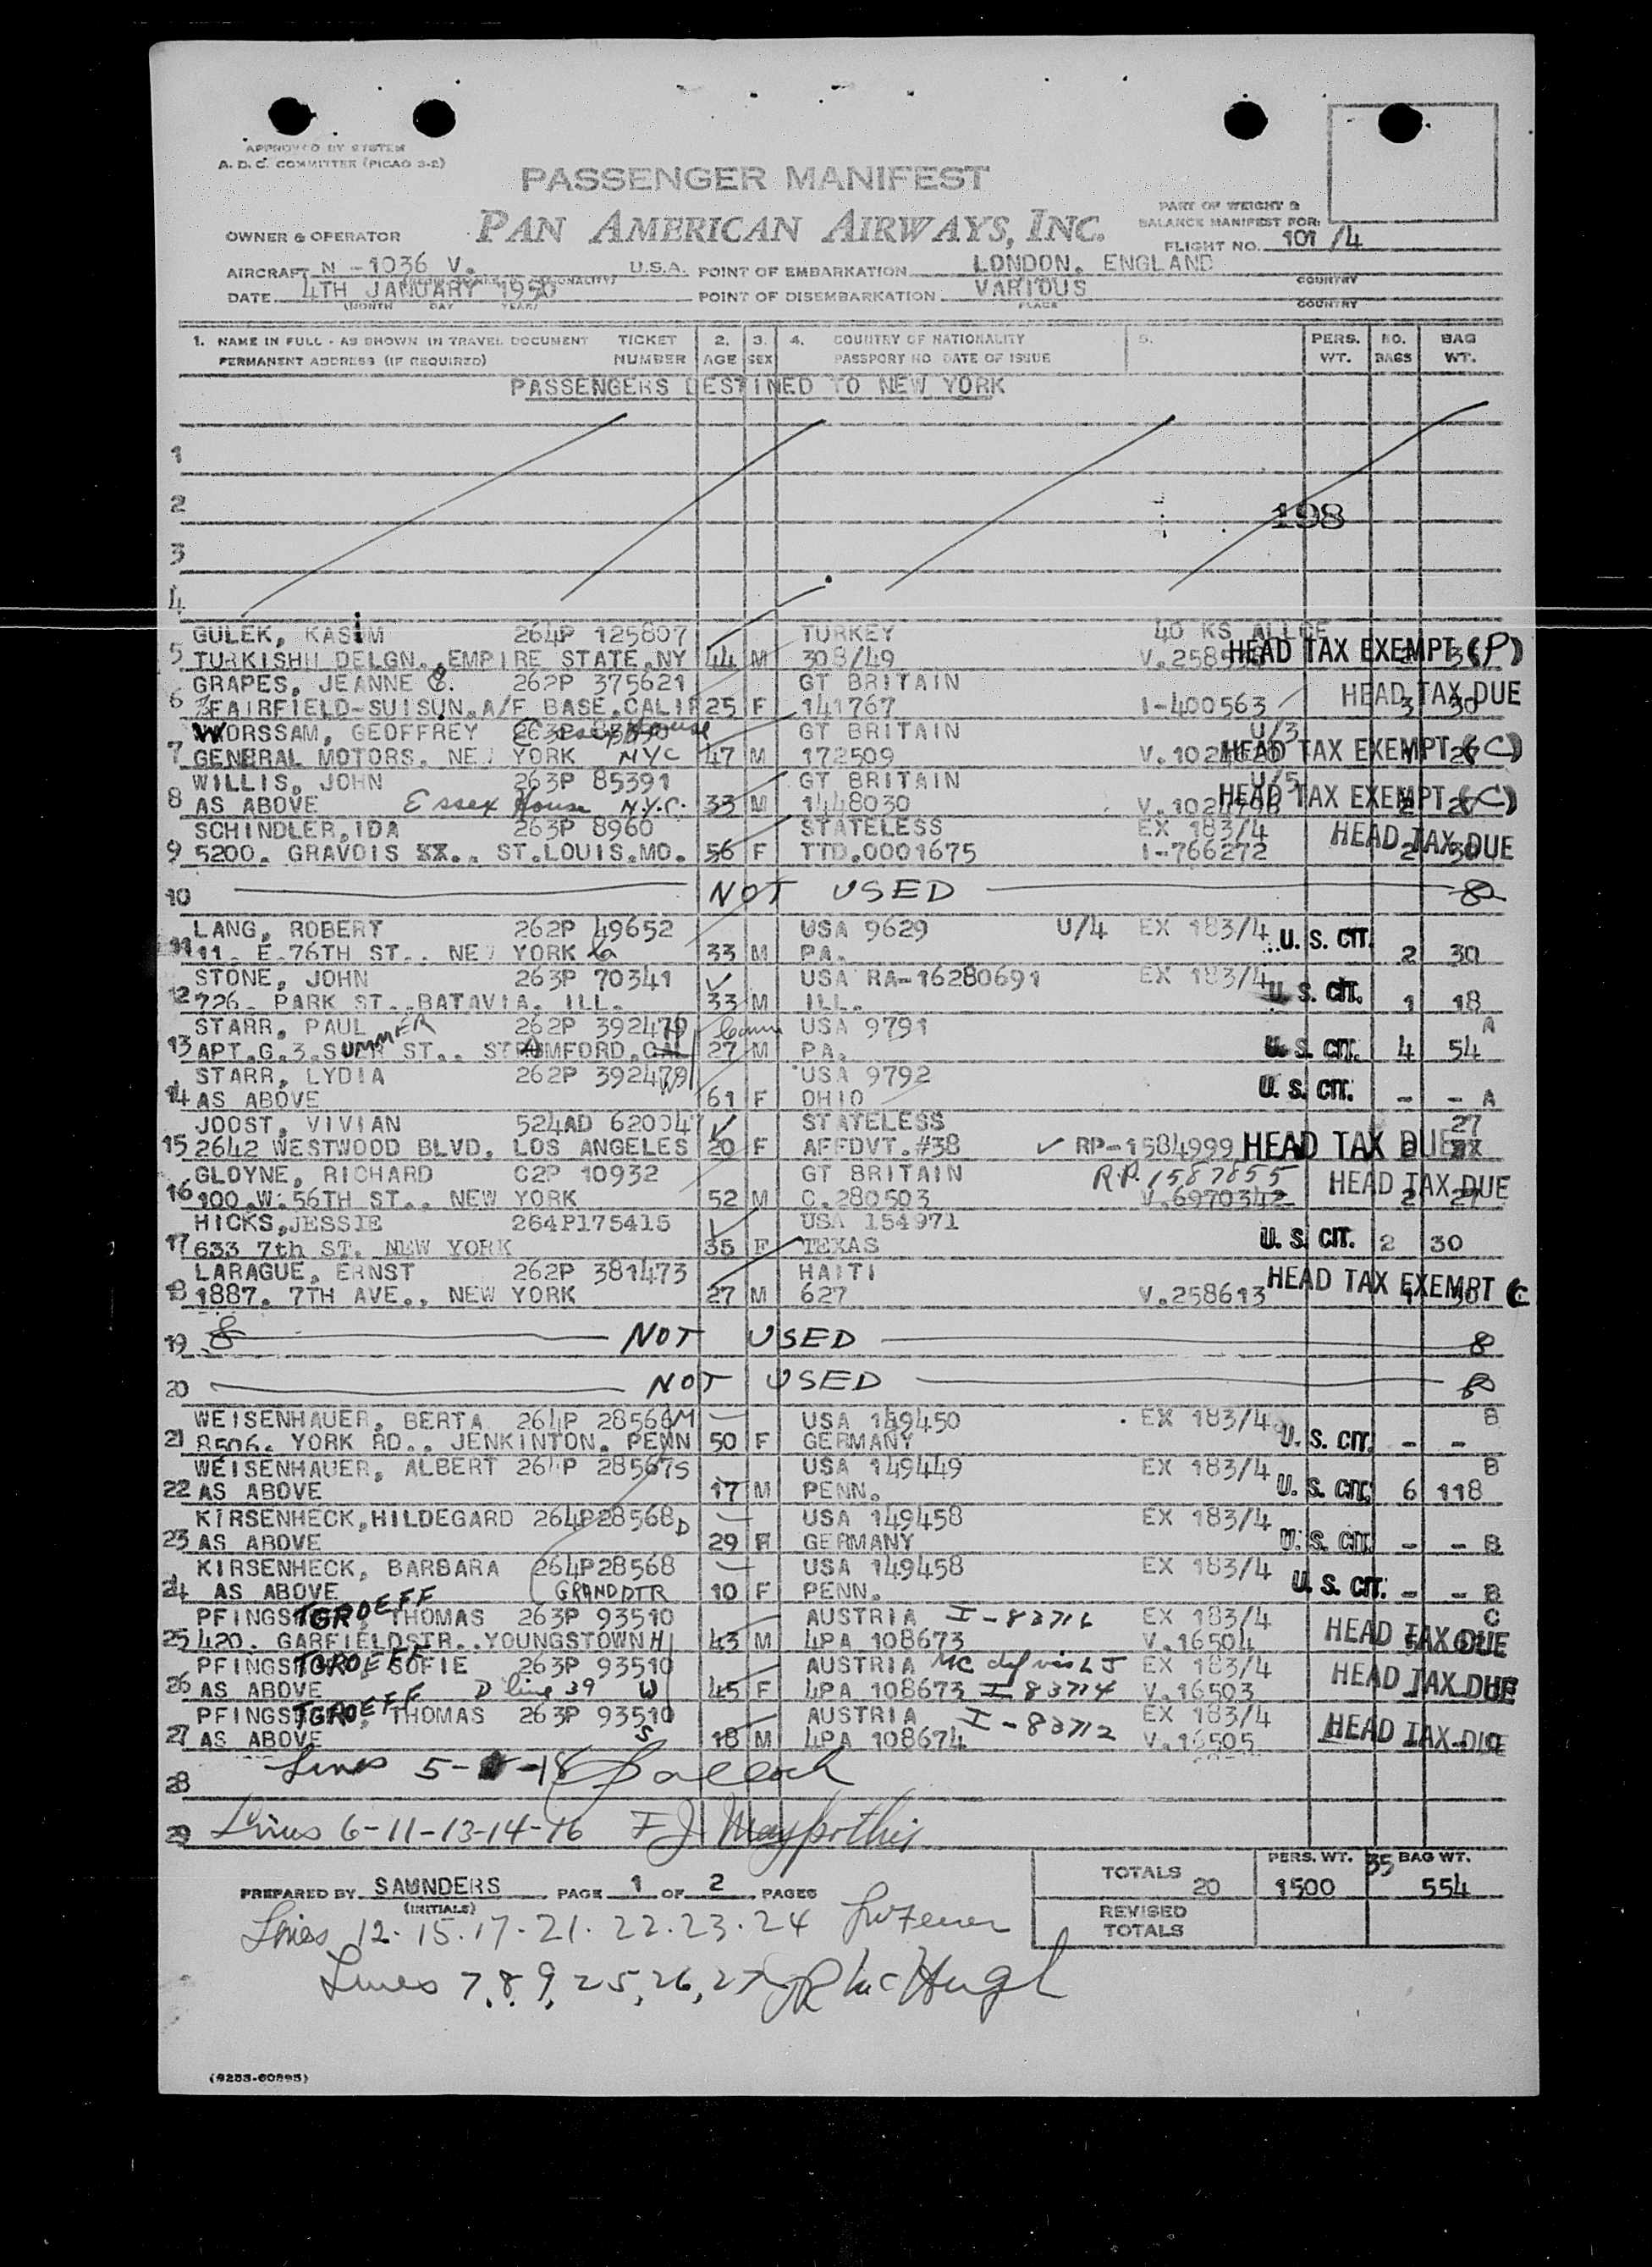 APPROVED BY SYSTEM
A. D. C. COMMITTEE (PICAO 3-2)
PASSENGER MANIFEST
PAN AMERICAN AIRWAYS, INC.
PART OF WEIGHT &
BALANCE MANIFEST FOR:
OWNER & OPERATOR
FLIGHT NO. 101/4
AIRCRAFT N-1036 V. U.S.A. POINT OF EMBARKATION LONDON. ENGLAND
COUNTRY
DATE 4TH JANUARY 1950 POINT OF DISEMBARKATION VARIOUS
(MONTH DAY YEAR) PLACE COUNTRY
1. NAME IN FULL - AS SHOWN IN TRAVEL DOCUMENT TICKET 2. 3. 4. COUNTRY OF NATIONALITY 5. PERS. NO. BAG
PERMANENT ADDRESS (IF REQUIRED) NUMBER AGE SEX PASSPORT NO. DATE OF ISSUE WT. BAGS WT.
PASSENGERS DESTINED TO NEW YORK
1
2 198
3
4
GULEK, KASIM 264P 125807 TURKEY 40 KS ALLCE
5 TURKISH DELGN., EMPIRE STATE.NY 44 M 308/49 HEAD TAX EXEMPT (P)
GRAPES, JEANNE E. 262P 375621 GT BRITAIN
6 FAIRFIELD-SUISUN.A/F BASE.CALIF 25 F 141767 I-400563 HEAD TAX DUE 3 30
WORSSAM, GEOFFREY Essex House GT BRITAIN U/3
7 GENERAL MOTORS. NEW YORK NYC 47 M 172509 HEAD TAX EXEMPT (C)
WILLIS, JOHN 263P 85391 GT BRITAIN U/5
8 AS ABOVE Essex House N.Y.C. 33 M 1448030 HEAD TAX EXEMPT (C)
SCHINDLER,IDA 263P 8960 STATELESS EX 183/4
9 5200. GRAVOIS XX.. ST.LOUIS.MO. 56 F TTD.0001675 I-766272 HEAD TAX DUE 2 30
10 NOT USED
LANG, ROBERT 262P 49652 USA 9629 U/4 EX 183/4
11 11. E.76TH ST.. NEW YORK 33 M PA. U. S. CIT. 2 30
STONE, JOHN 263P 70341 USA RA-16280691 EX 183/4
12 726. PARK ST..BATAVIA. ILL. 33 M ILL. U. S. CIT. 1 18
STARR, PAUL 262P 392479 H Conn USA 9791 A
13 APT.G.3.SUMMER ST.. STAMFORD.CAL 27 M PA. U. S. CIT. 4 54
STARR, LYDIA 262P 392479 W USA 9792
14 AS ABOVE 61 F OHIO U. S. CIT. - - A
JOOST, VIVIAN 524AD 620047 STATELESS 27
15 2642 WESTWOOD BLVD. LOS ANGELES 20 F AFFDVT.#38 RP-1584999 HEAD TAX DUE
GLOYNE, RICHARD C2P 10932 GT BRITAIN R.P. 1587855
16 100.W.56TH ST.. NEW YORK 52 M C.280503 V.6970342 HEAD TAX DUE 2 27
HICKS,JESSIE 264P175415 USA 154971
17 633 7th ST. NEW YORK 35 F TEXAS U. S. CIT. 2 30
LARAGUE, ERNST 262P 381473 HAITI
18 1887. 7TH AVE., NEW YORK 27 M 627 V.258613 HEAD TAX EXEMPT C
19 NOT USED
20 NOT USED
WEISENHAUER, BERTA 264P 28566M USA 149450 EX 183/4 B
21 8506. YORK RD.. JENKINTON. PENN 50 F GERMANY U. S. CIT. - -
WEISENHAUER, ALBERT 264P 28567S USA 149449 EX 183/4 B
22 AS ABOVE 17 M PENN. U. S. CIT. 6 118
KIRSENHECK,HILDEGARD 264P28568 D USA 149458 EX 183/4
23 AS ABOVE 29 F GERMANY U. S. CIT. - - B
KIRSENHECK, BARBARA 264P28568 USA 149458 EX 183/4
24 AS ABOVE GRANDDTR 10 F PENN. U. S. CIT. - - B
PFINGSTGROEFF THOMAS 263P 93510 AUSTRIA I-83716 EX 183/4 C
25 420. GARFIELDSTR..YOUNGSTOWN H 43 M 4PA 108673 V.16504 HEAD TAX DUE
PFINGSTGROEFF SOFIE 263P 93510 AUSTRIA EX 183/4
26 AS ABOVE D line 39 W 45 F 4PA 108673 I 83714 V.16503 HEAD TAX DUE
PFINGSTGROEFF, THOMAS 263P 93510 AUSTRIA I-83712 EX 183/4
27 AS ABOVE S 18 M 4PA 108674 V.16505 HEAD TAX DUE
28 Lines 5-18
29 Lines 6-11-13-14-16 F J
TOTALS 20 PERS. WT. 1500 35 BAG WT. 554
PREPARED BY SAUNDERS PAGE 1 OF 2 PAGES
(INITIALS)
REVISED
TOTALS
Lines 12.15.17-21.22.23.24
Lines 7,8,9,25,26,27 JR McHugh
(9253-60895)